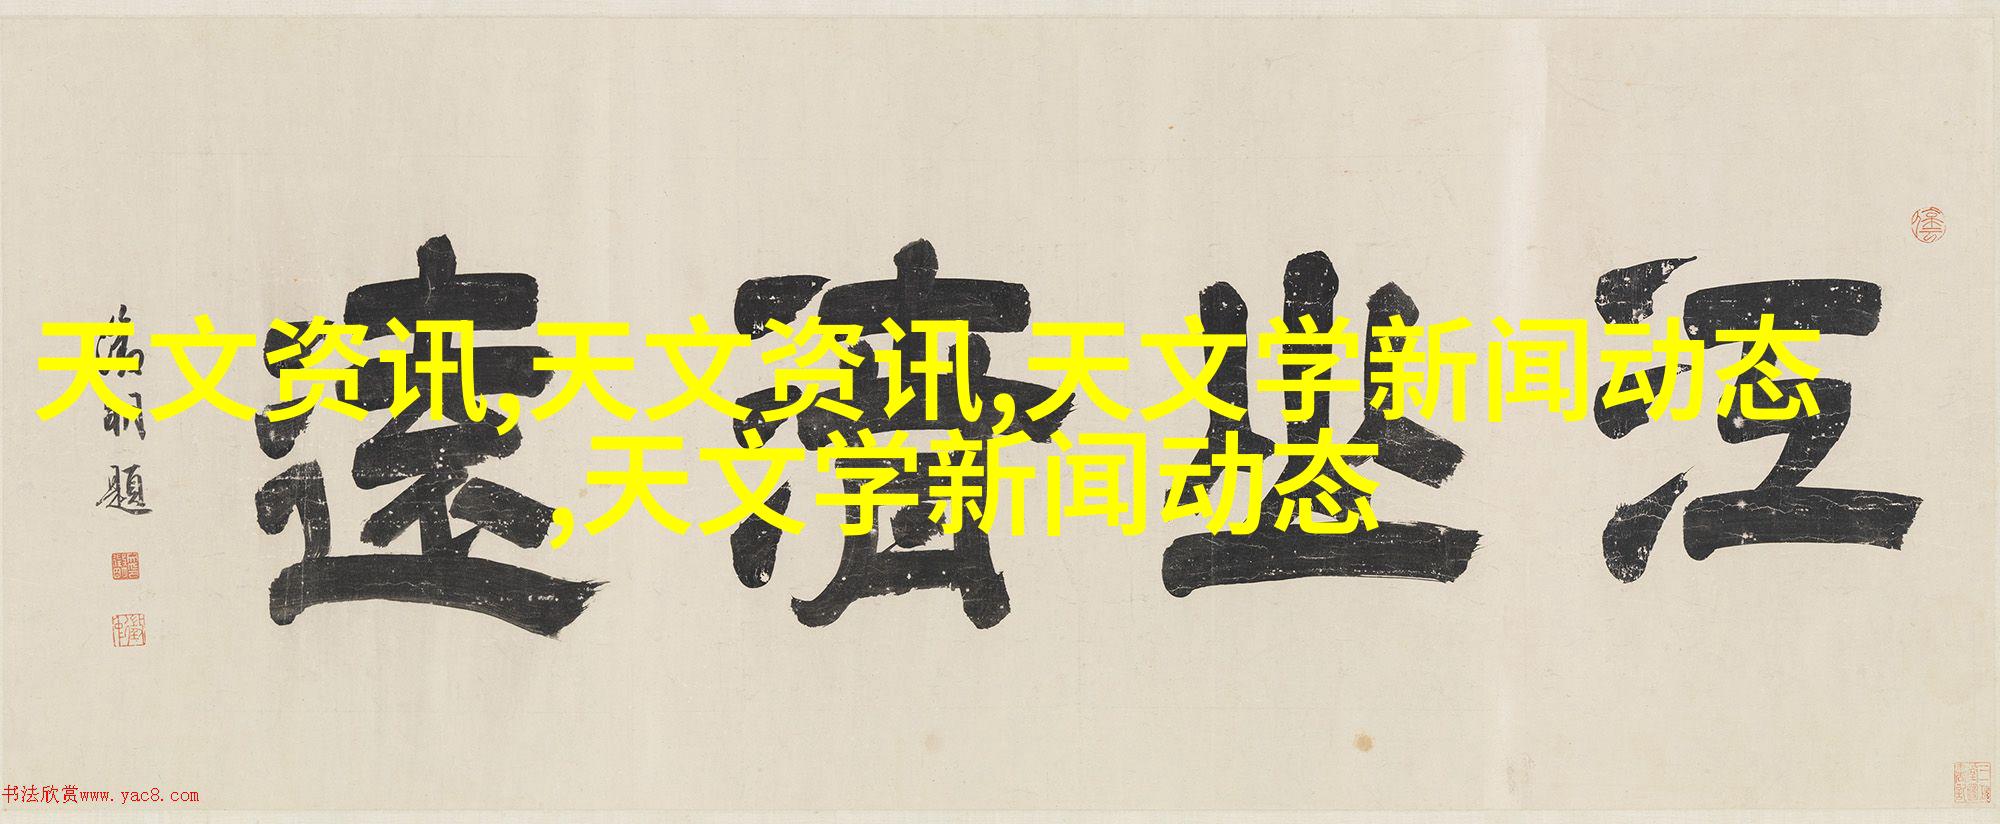 天文资讯,天文资讯,天文学新闻动态
,天文学新闻动态
江山清遠
徵明題
书法欣赏www.yac8.com